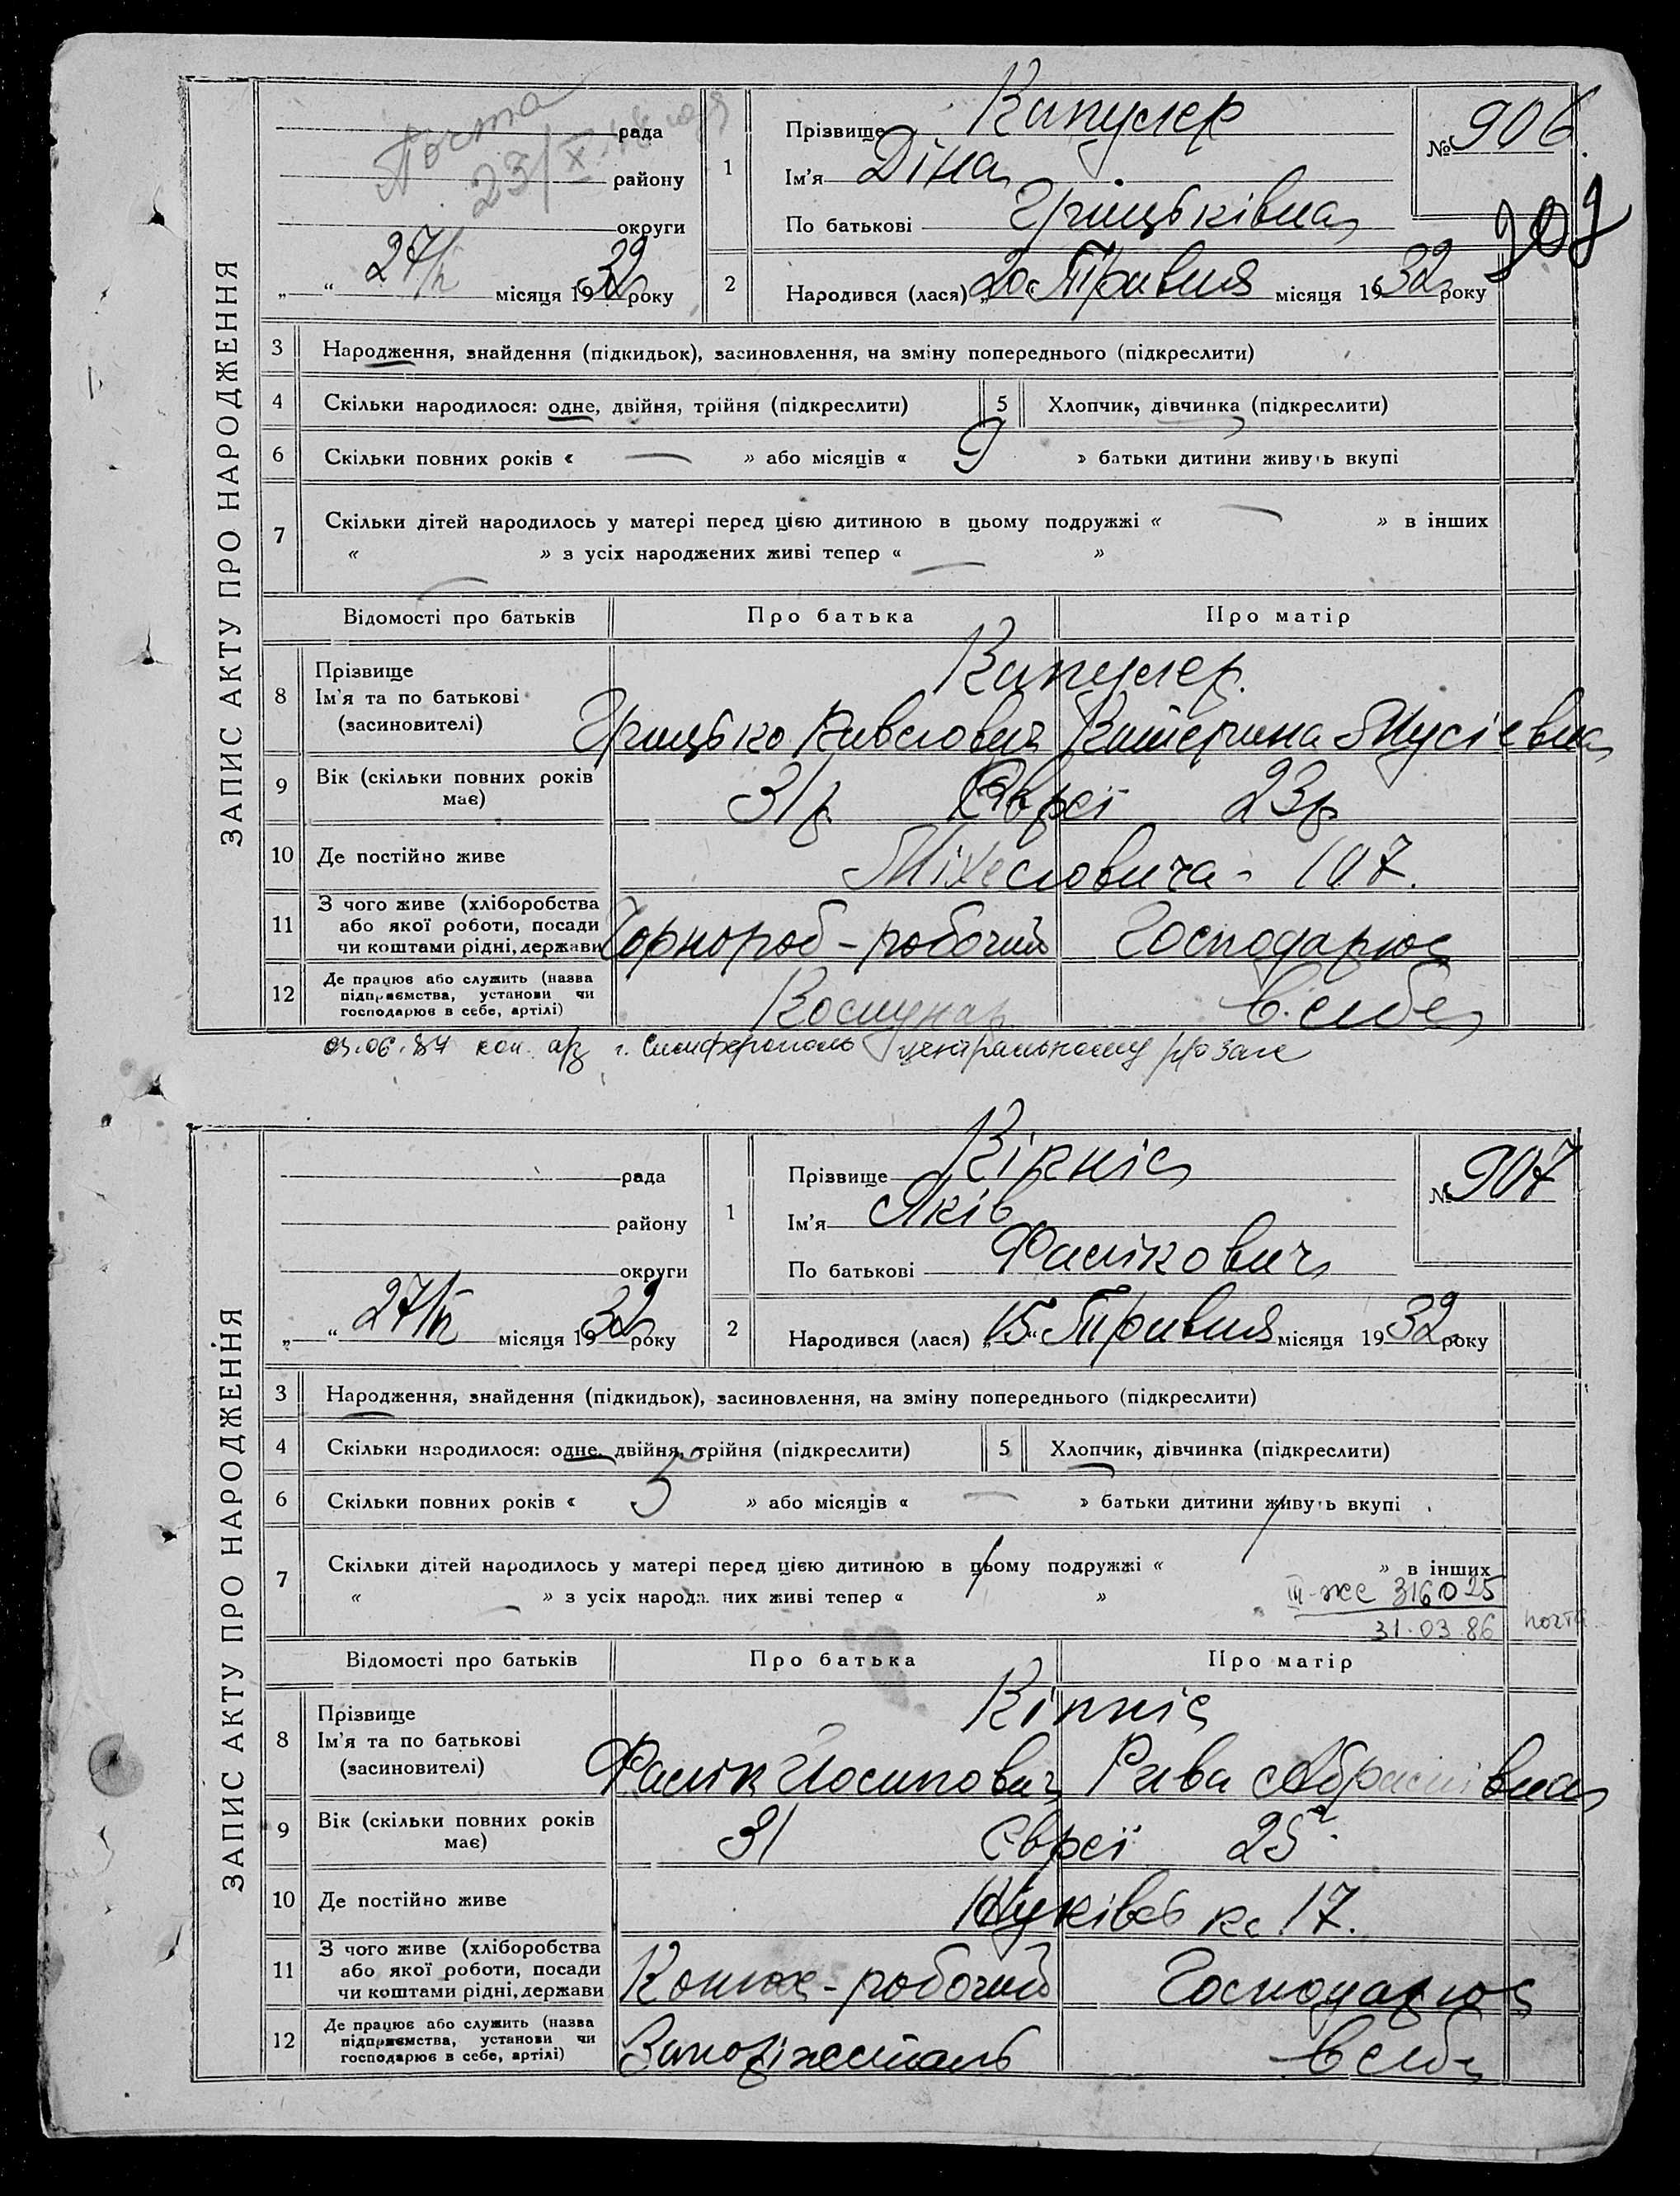 ЗАПИС АКТУ ПРО НАРОДЖЕННЯ
Почта
23/X
рада
району
округи
„ “ 27/V місяця 1932 року
1
Прізвище Капулер
Ім'я Діна
По батькові Грицьківна
№ 906
907
2
Народився (лася) „20“ Травня місяця 1932 року
3 Народження, знайдення (підкидьок), засиновлення, на зміну попереднього (підкреслити)
4 Скільки народилося: одне, двійня, трійня (підкреслити)
5 Хлопчик, дівчинка (підкреслити)
6 Скільки повних років « — » або місяців « 9 » батьки дитини живуть вкупі
7 Скільки дітей народилось у матері перед цією дитиною в цьому подружжі « — » в інших
« — » з усіх народжених живі тепер « — »
Відомості про батьків Про батька Про матір
8 Прізвище
Ім'я та по батькові
(засиновителі)
Капулер
Грицько Кавелович Катерина Мусієвна
9 Вік (скільки повних років має)
31 р. Євреї 23 р
10 Де постійно живе
107.
11 З чого живе (хліборобства
або якої роботи, посади
чи коштами рідні, держави
Чорнороб - робочий Господарює
12 Де працює або служить (назва
підприємства, установи чи
господарює в себе, артілі)
Комунар в себе
г. Симферополь центральному р/о загс
ЗАПИС АКТУ ПРО НАРОДЖЕННЯ
рада
району
округи
„ “ 27/V місяця 1932 року
1
Прізвище Кіпніс
Ім'я Яків
По батькові Фалікович
№ 907
2
Народився (лася) „15“ Травня місяця 1932 року
3 Народження, знайдення (підкидьок), засиновлення, на зміну попереднього (підкреслити)
4 Скільки народилося: одне, двійня, трійня (підкреслити)
5 Хлопчик, дівчинка (підкреслити)
6 Скільки повних років « 5 » або місяців « — » батьки дитини живуть вкупі
7 Скільки дітей народилось у матері перед цією дитиною в цьому подружжі « 1 » в інших
« — » з усіх народжених живі тепер « 1 »
III-ЖС 316025
31.03.86 почта
Відомості про батьків Про батька Про матір
8 Прізвище
Ім'я та по батькові
(засиновителі)
Кіпніс
Фалік Йосипович Рива Абрамівна
9 Вік (скільки повних років має)
31 Євреї 25
10 Де постійно живе
17.
11 З чого живе (хліборобства
або якої роботи, посади
чи коштами рідні, держави
Конюх - робочий Господарює
12 Де працює або служить (назва
підприємства, установи чи
господарює в себе, артілі)
Запоріжсталь в себе